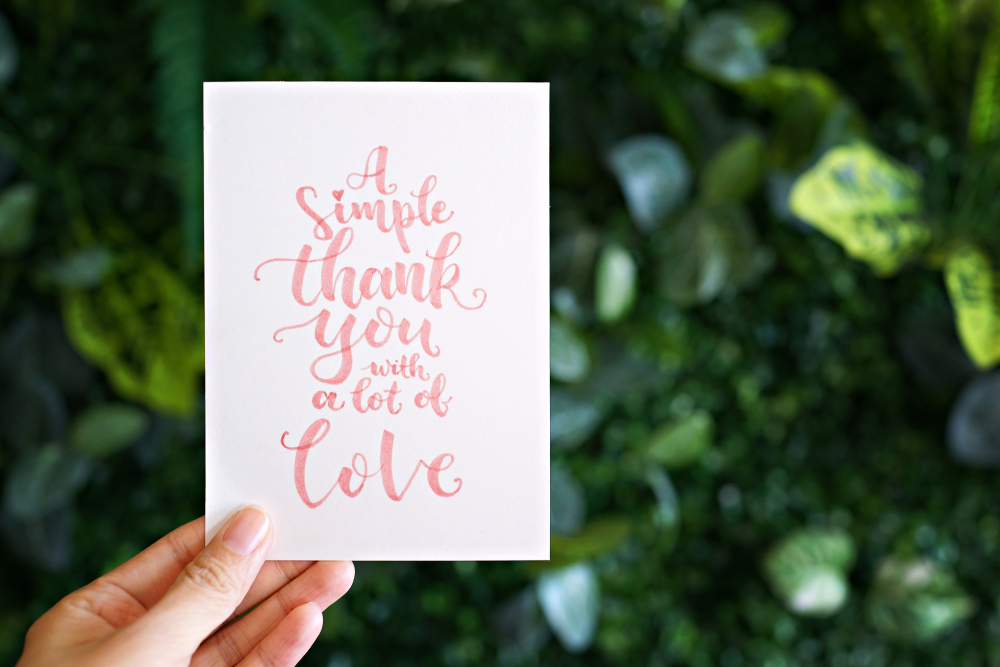 A
Simple
thank
you
with
a lot of
love